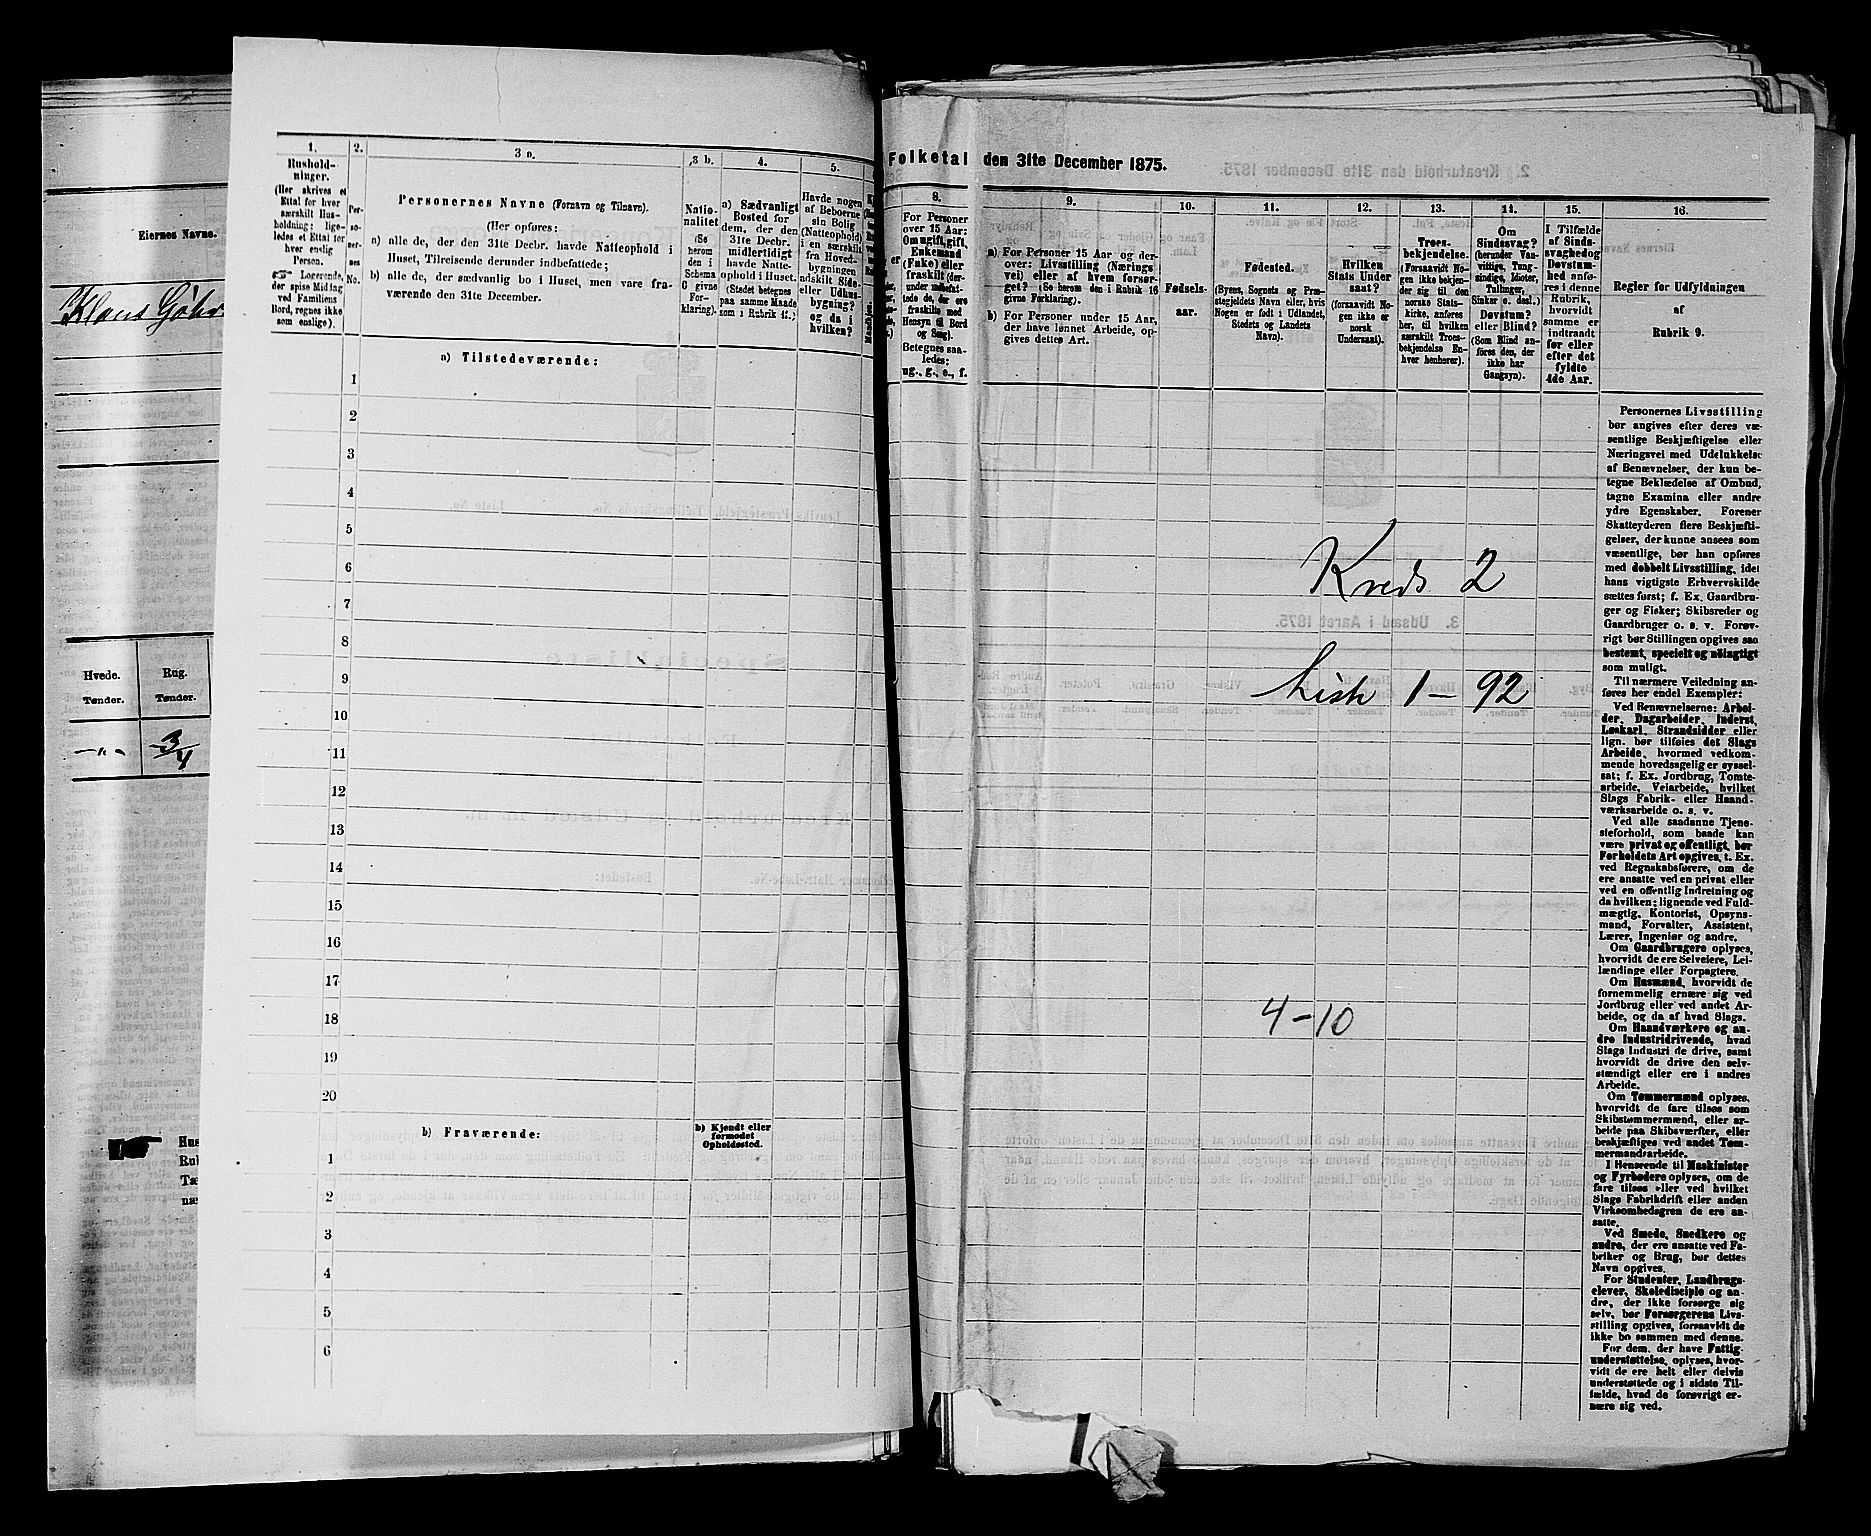 Eiernes Navne.
Klaus
Hvede.
Tønder.
Rug.
Tønder.
-"-
3/4
1.
Hushold-
ninger.
(Her skrives et
Ettal for hver
særskilt Hus-
holdning; lige-
ledes et Ettal for
hver enslig
Person.
☞ Logerende,
der spise Middag
ved Familiens
Bord, regnes ikke
som enslige).
2.
Per-
so-
ner-
nes
No.
3 a.
Personernes Navne (Fornavn og Tilnavn).
(Her opføres:
a) alle de, der den 31te Decbr. havde Natteophold i
Huset, Tilreisende derunder indbefattede;
b) alle de, der sædvanlig bo i Huset, men vare fra-
værende den 31te December.
3 b.
Natio-
nalitet
(Se
herom
den i
Schema
C givne
For-
klaring).
4.
a) Sædvanligt
Bosted for
dem, der den
31te Decbr.
midlertidigt
havde Natte-
ophold i Huset.
(Stedet betegnes
paa samme Maade
som i Rubrik 11.)
5.
Havde nogen
af Beboerne
sin Bolig
(Natteophold)
i en særskilt
fra Hoved-
bygningen
adskilt Side-
eller Udhus-
bygning?
og da i
hvilken?
a) Tilstedeværende:
1
2
3
4
5
6
7
8
9
10
11
12
13
14
15
16
17
18
19
20
b) Fraværende:
b) Kjendt eller
formodet
Opholdssted.
1
2
3
4
5
6
Folketal den 31te December 1875.
8.
For Personer
over 15 Aar:
Om ugift, gift,
Enkemand
(Enke) eller
fraskilt (der-
under indbefat-
tede de, der ere
fraskilte med
Hensyn til Bord
og Seng).
Betegnes saa-
ledes:
ug., g., e., f.
9.
a) For Personer 15 Aar og der-
over: Livsstilling (Nærings-
vei) eller af hvem forsør-
get? (Se herom den i Rubrik 16
givne Forklaring).
b) For Personer under 15 Aar,
der have lønnet Arbeide, op-
gives dettes Art.
10.
Fødsels-
aar.
11.
Fødested.
(Byens, Sognets og Præ-
stegjeldets Navn eller, hvis
Nogen er født i Udlandet,
Stedets og Landets
Navn).
12.
Hvilken
Stats Under-
saat?
(forsaavidt No-
gen ikke er
norsk
Undersaat).
13.
Troes-
bekjendelse.
(Forsaavidt No-
gen ikke bekjen-
der sig til den
norske Stats-
kirke, anføres
her, til hvilken
særskilt Troes-
bekjendelse En-
hver henhører).
14.
Om
Sindssvag?
(herunder Van-
vittige, Tung-
sindige, Idioter,
Tullinger,
Sinker o. desl.)
Døvstum?
eller Blind?
(Som Blind an-
føres den, der
ikke har
Gangsyn).
15.
I Tilfælde
af Sinds-
svaghed og
Døvstum-
hed anfø-
res i denne
Rubrik,
hvorvidt
samme er
indtraadt
før eller
efter det
fyldte
4de Aar.
16.
Regler for Udfyldningen
af
Rubrik 9.
Personernes Livsstilling
bør angives efter deres væ-
sentlige Beskjæftigelse eller
Næringsvei med Udelukkelse
af Benævnelser, der kun be-
tegne Beklædelse af Ombud,
tagne Examina eller andre
ydre Egenskaber. Forener
Skatteyderen flere Beskjæfti-
gelser, der kunne ansees som
væsentlige, bør han opføres
med dobbelt Livsstilling, idet
hans vigtigste Erhvervskilde
sættes først; f. Ex. Gaardbru-
ger og Fisker; Skibsreder og
Gaardbruger o. s. v. Forøv-
rigt bør Stillingen opgives saa
bestemt, specielt og nøiagtigt
som muligt.
Til nærmere Veiledning an-
føres her endel Exempler:
Ved Benævnelserne: Arbei-
der, Dagarbeider, Inderst,
Løskarl, Strandsidder eller
lign. bør tilføies det Slags
Arbeide, hvormed vedkom-
mende hovedsagelig er syssel-
sat; f. Ex. Jordbrug, Tomte-
arbeide, Veiarbeide, hvilket
Slags Fabrik- eller Haand-
værksarbeide o. s. v.
Ved alle saadanne Tjene-
steforhold, som baade kan
være privat og offentligt, bør
Forholdets Art opgives, t. Ex.
ved Regnskabsførere, om de
ere ansatte ved en privat eller
ved en offentlig Indretning og
da hvilken; lignende ved Fuld-
mægtig, Kontorist, Opsyns-
mand, Forvalter, Assistent,
Lærer, Ingeniør og andre.
Om Gaardbrugere oplyses,
hvorvidt de ere Selveiere, Lei-
lændinge eller Forpagtere.
Om Husmænd, hvorvidt de
fornemmelig ernære sig ved
Jordbrug eller ved andet Ar-
beide, og da af hvad Slags.
Om Haandværkere og an-
dre Industridrivende, hvad
Slags Industri de drive, samt
hvorvidt de drive den selv-
stændigt eller ere i andres
Arbeide.
Om Tømmermænd oplyses,
hvorvidt de fare tilsøs som
Skibstømmermænd, eller ar-
beide paa Skibsværfter, eller
beskjæftiges ved andet Tøm-
mermandarbeide.
I Henseende til Maskinister
og Fyrbødere oplyses, om de
fare tilsøs eller ved hvilket
Slags Fabrikdrift eller anden
Virksomhedsgren de ere an-
satte.
Ved Smede, Snedkere og
andre, der ere ansatte ved Fa-
briker og Brug, bør dettes
Navn opgives.
For Studenter, Landbrugs-
elever, Skoledisciple og an-
dre, der ikke forsørge sig
selv, bør Forsørgerens Livs-
stilling opgives, forsaavidt de
ikke bo sammen med denne.
For dem, der have Fattig-
understøttelse, oplyses, hvor-
vidt de ere helt eller delvis
understøttede og i sidste Til-
fælde, hvad de forøvrigt er-
nære sig ved.
Kreds 2
Liste 1-92
4-10